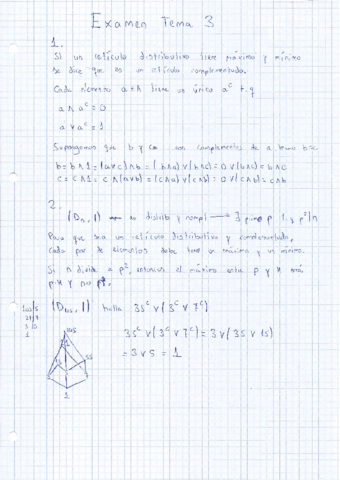 Examen Tema 3
1.
Si un retículo distributivo tiene máximo y mínimo
se dice que es un retículo complementado.
Cada elemento a∈A tiene un único a^c t.q
a ∧ a^c = 0
a ∨ a^c = 1
Supongamos que b y c son complementos de a, b=c
b = b∧1 = (a∨c)∧b = (b∧a)∨(b∧c) = 0∨(b∧c) = b∧c
c = c∧1 = c∧(a∨b) = (c∧a)∨(c∧b) = 0∨(c∧b) = c∧b
2.
(Dn, |) no distrib y compl → ∃ primo p y p²|n
Para que sea un retículo distributivo y complementado,
cada par de elementos debe tener un máximo y un mínimo.
Si n divide a p², entonces el máximo entre p y x será
p·x y no p².
(D105, |) halla 35^c ∨ (3^c ∧ 7^c)
35^c ∨ (3^c ∧ 7^c) = 3 ∨ (35 ∨ 15)
= 3 ∨ 5 = 1
105 5
21 7
3 3
1
105
35
1